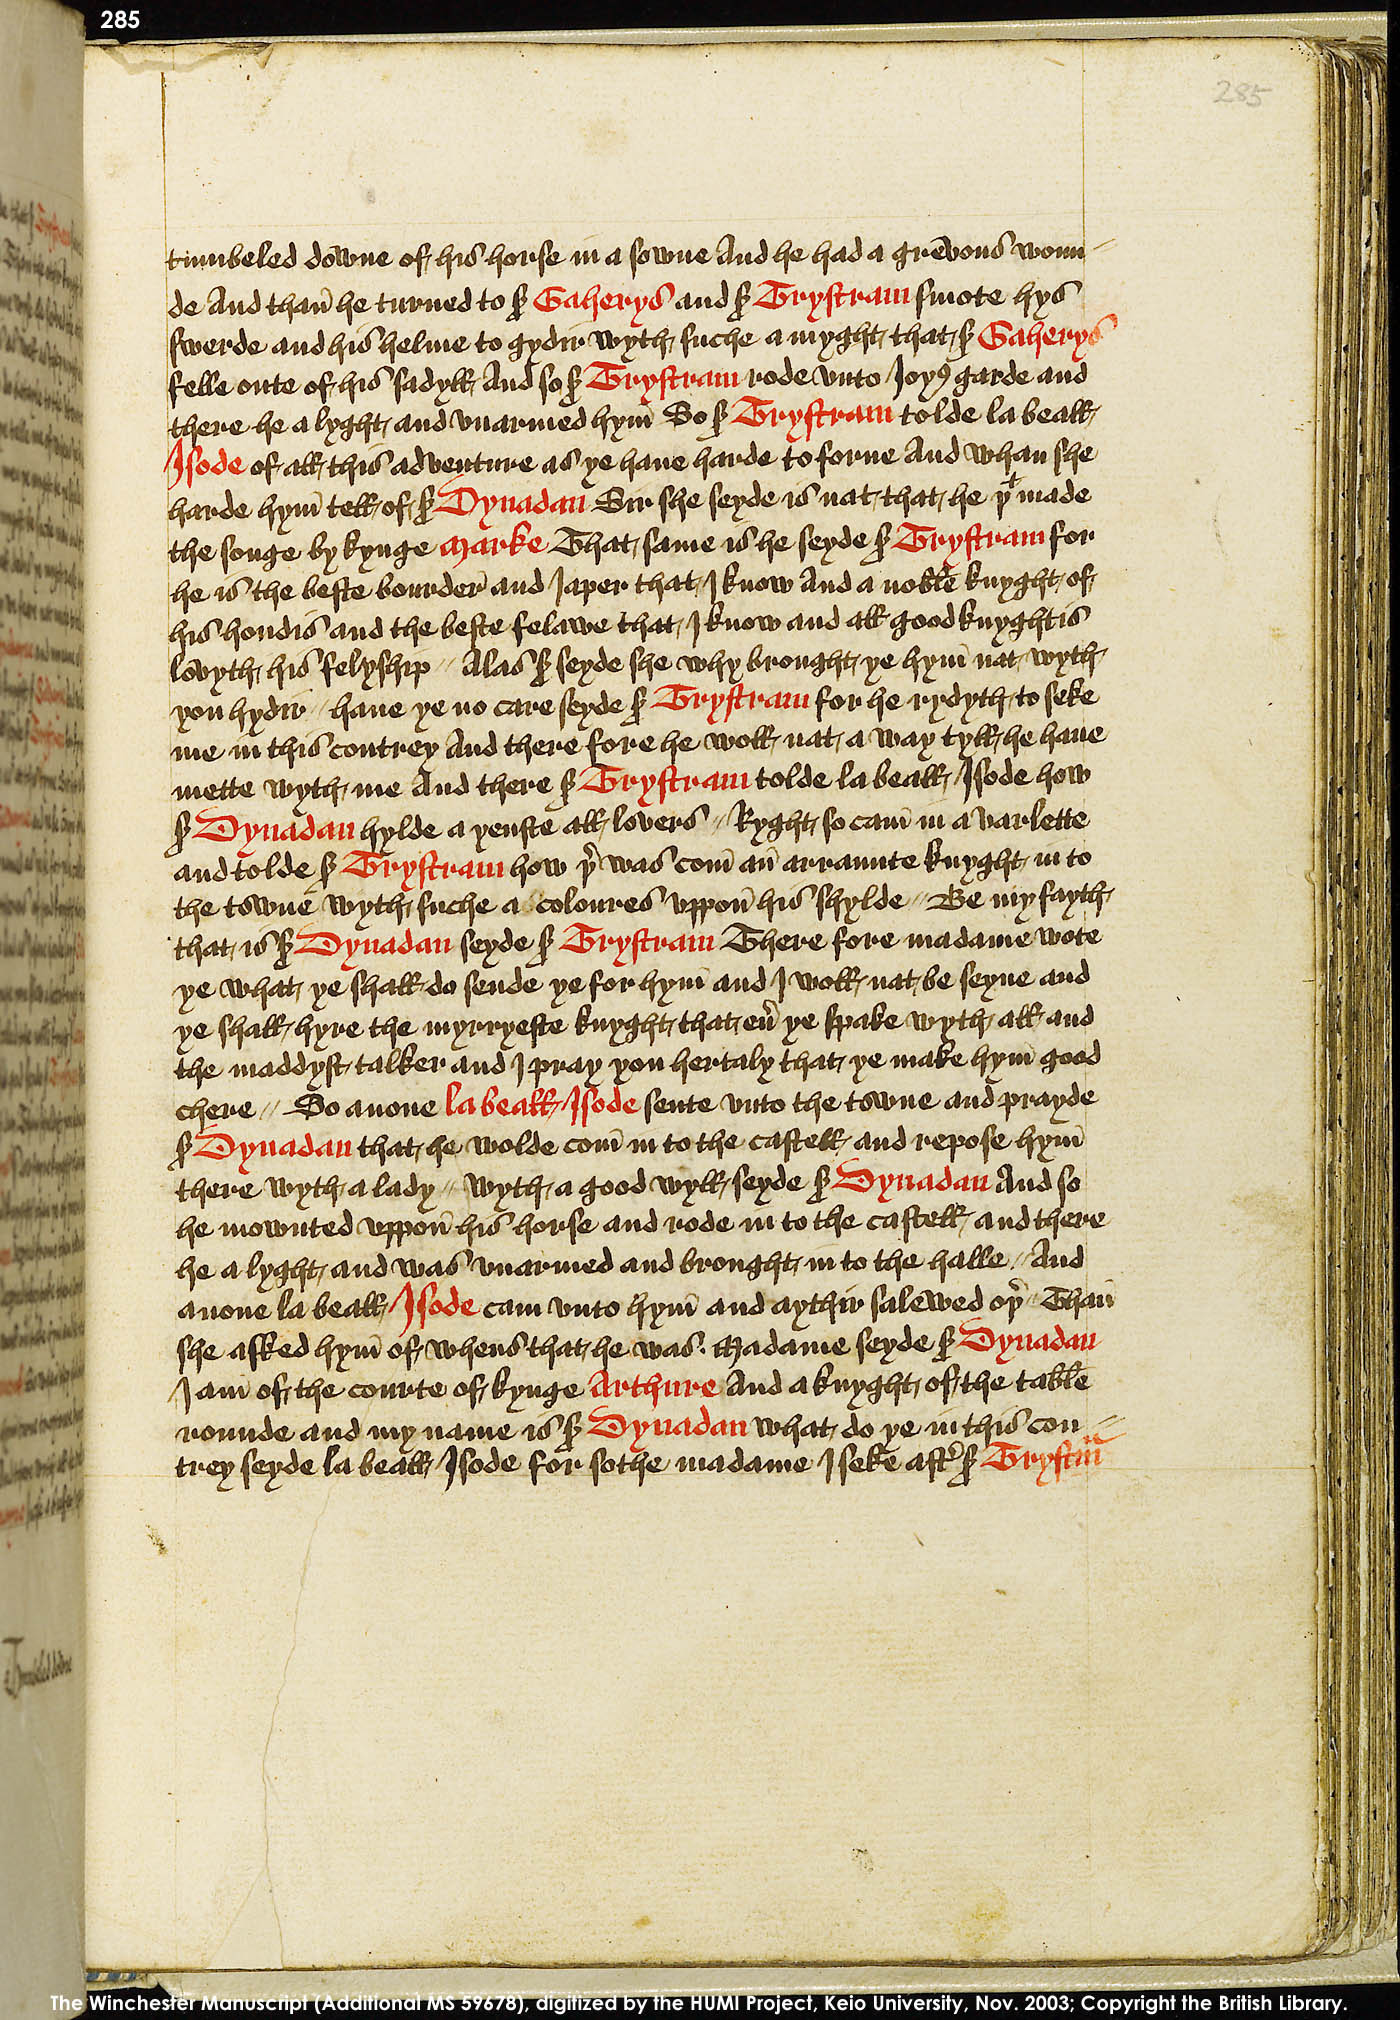 285
285
tumbeled downe of his horse in a sowne And he had a grevous woun
de And than he turned to sir Gaherys and sir Trystram smote hys
swerde and his helme to gydir wyth suche a myght that sir Gaherys
felle oute of his sadyll And so sir Trystram rode vnto Joyꝰ garde and
there he a lyght and vnarmed hym̄ So sir Trystram tolde la beall
Isode of all this adventure as ye haue harde to forne And whan she
harde hym̄ tell of sir Dynadan Sir she seyde is nat that he þt made
the songe by kynge Marke That same is he seyde sir Trystram for
he is the beste bourder and Japer that I know And a noble knyght of
his hondis and the beste felawe that I know and all good knyghtis
lovyth his felyship // Alas sir seyde she why brought ye hym̄ nat wyth
you hydir // haue ye no care seyde sir Trystram for he rydyth to seke
me in this contrey And there fore he woll nat a way tyll he haue
mette wyth me And there sir Trystram tolde la beall Isode how
sir Dynadan hylde a yenste all lovers // Ryght so cam̄ in a varlette
and tolde sir Trystram how þr was com̄ an̄ arraunte knyght in to
the towne wyth suche a coloures vppon̄ his shylde // Be my fayth
that is sir Dynadan seyde sir Trystram There fore madame wote
ye what ye shall do sende ye for hym̄ and I woll nat be seyne and
ye shall hyre the myrryeste knyght that eu̓ ye spake wyth all and
the maddyst talker and I pray you hertaly that ye make hym̄ good
chere // So anone la beall Isode sente vnto the towne and prayde
sir Dynadan that he wolde com̄ in to the castell and repose hym̄
there wyth a lady // Wyth a good wyll seyde sir Dynadan And so
he mownted vppon̄ his horse and rode in to the castell and there
he a lyght and was vnarmed and brought in to the halle // And
anone la beall Isode cam vnto hym̄ and aythir salewed oþr // Than̄
she asked hym̄ of whens that he was. Madame seyde sir Dynadan
I am of the courte of kynge Arthure And a knyght of the table
rounde and my name is sir Dynadan what do ye in this con
trey seyde la beall Isode for sothe madame I seke aftr sir Trystm̄
The Winchester Manuscript (Additional MS 59678), digitized by the HUMI Project, Keio University, Nov. 2003; Copyright the British Library.